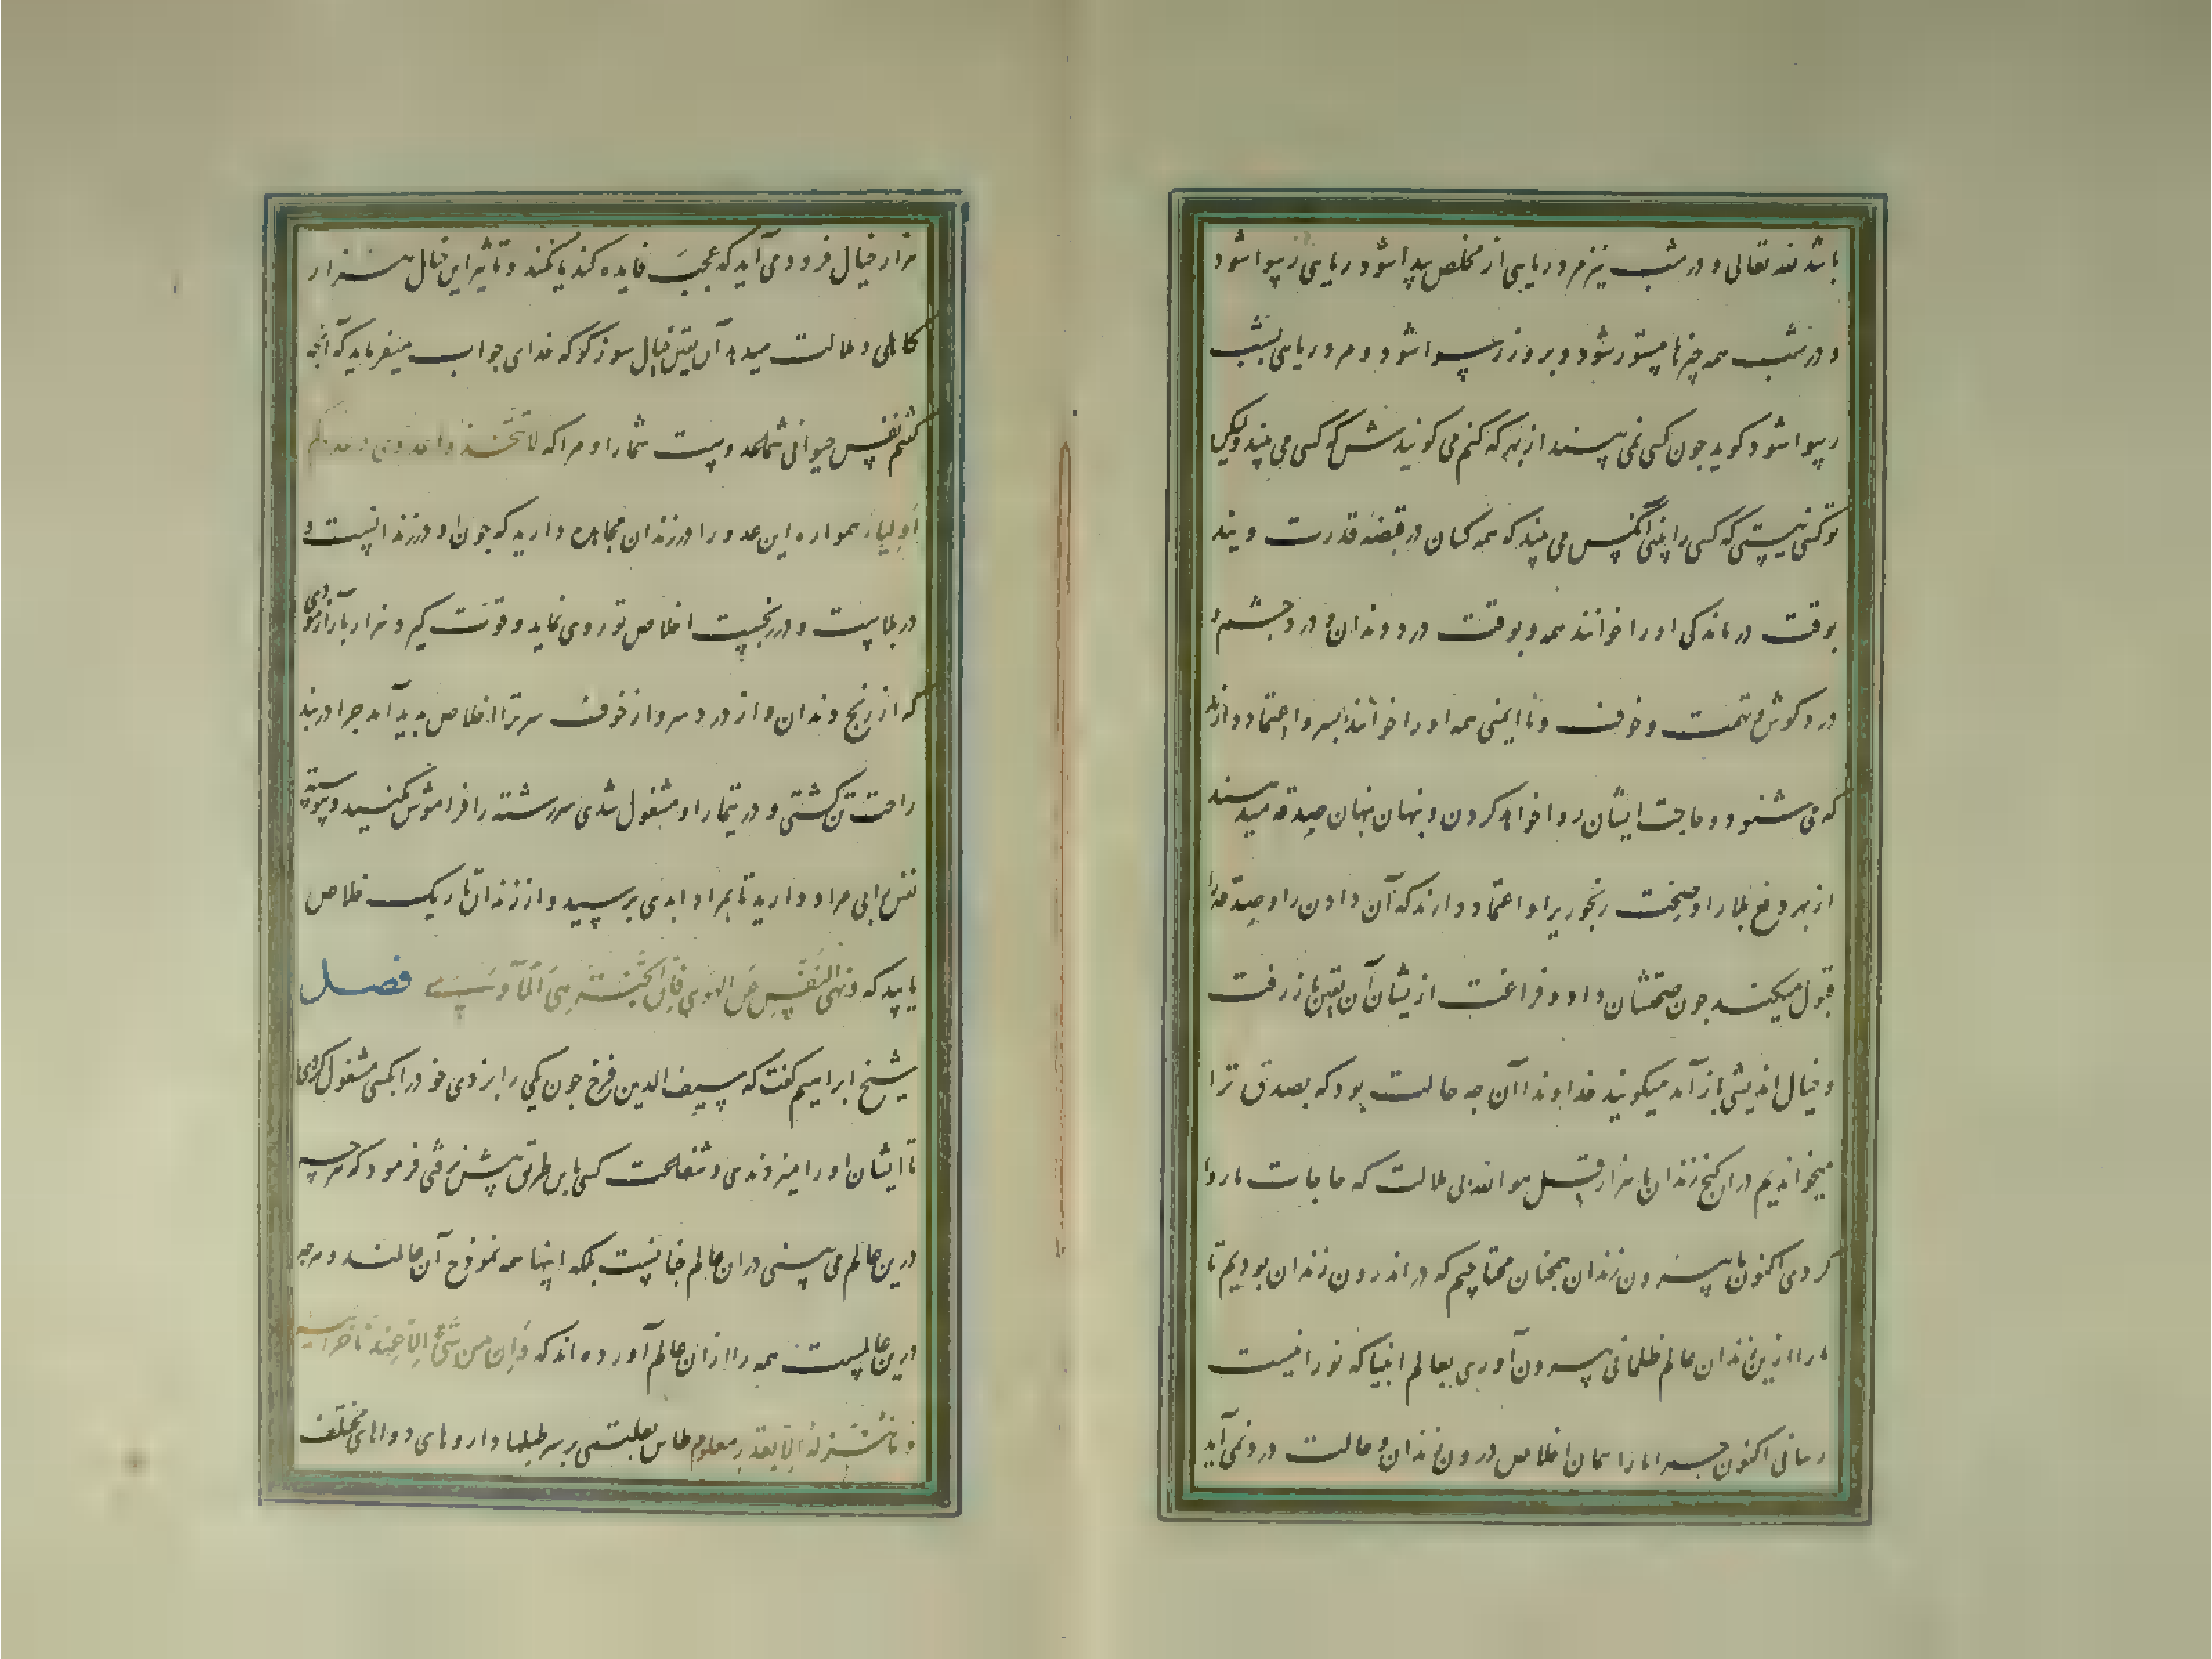 باشد لله تعالی و در شب نیز مرد ریایی از مخلص پیدا شود ریایی رسوا شود
و در شب همه چیزها مستور شود و بروز رسوا شود و مرد ریایی بشب
رسوا شود کوید جون کسی نمی بیند از بهر که کنم می کویندش که کسی می بیند ولیکن
تو کسی نیستی که کسی را بینی آنکس می بیند که همه کسان در قبضه قدرت ویند
بوقت درماندگی او را خوانند همه و بوقت درد دندان و درد چشم و
درد کوش و تهمت و خوف و ناایمنی همه او را خوانند بسر و اعتماد دارند
که می شنود و حاجت ایشان روا خواهد کردن و نهان نهان صدقه میدهند
از بهر دفع بلا را و صحت رنجوری را و اعتماد دارند که آن دادن را و صدقه را
قبول میکند جون صحتشان داد و فراغت ازیشان آن یقین باز رفت
و خیال اندیشی باز آمد میکویند خداوندا آن چه حالت بود که بصدق ترا
میخواندیم در آن کنج زندان با هزار قل هو الله بی ملالت که حاجات ما روا
کردی اکنون ما بیرون زندان همچنان محتاجیم که در اندرون زندان بودیم تا
ما را ازین زندان عالم ظلمانی بیرون آوری بعالم انبیا که نورانیست
رسانی اکنون چرا ما را همان اخلاص درون زندان و حالت درد نمی آید
هزار خیال فرود می آید که عجب فایده کند یا نکند و تاثیر این خیال هزار
کاهلی و ملالت میدهد آن یقین خیال سوز کو که خدای جواب میفرماید که آنچه
گفتم نفس حیوانی شما عدوست شما را و مرا که لا تتخذوا عدوی و عدوکم
اولیاء همواره این عدو را در زندان مجاهده دارید که جون او در زندانست و
در بلاست و در رنجست اخلاص تو روی نماید و قوت گیرد هزار بار آزمودی
که از رنج دندان و از درد سر و از خوف سر ترا اخلاص بدید آمد چرا در بند
راحت تن گشتی و در تیمار او مشغول شدی سررشته را فراموش مکنید و پیوسته
نفس را بی مراد دارید تا بمراد ابدی برسید و از زندان تاریک خلاص
یابید که و نهی النفس عن الهوی فان الجنة هی الماوی فصل
شیخ ابراهیم گفت که سیف الدین فرخ جون یکی را بزدی خود را بکسی مشغول کردی
تا ایشان او را میزدندی و شفاعت کسی باین طریق پیش نرفتی فرمود که هرچه
درین عالم می بینی در آن عالم چنانست بلکه اینها همه نموذج آن عالمند و هرچه
درین عالمست همه را از آن عالم آورده اند که و ان من شیء الا عندنا خزائنه
و ما ننزله الا بقدر معلوم طاس بعلبکی بر سر طبلها و داروهای دواهای مختلف